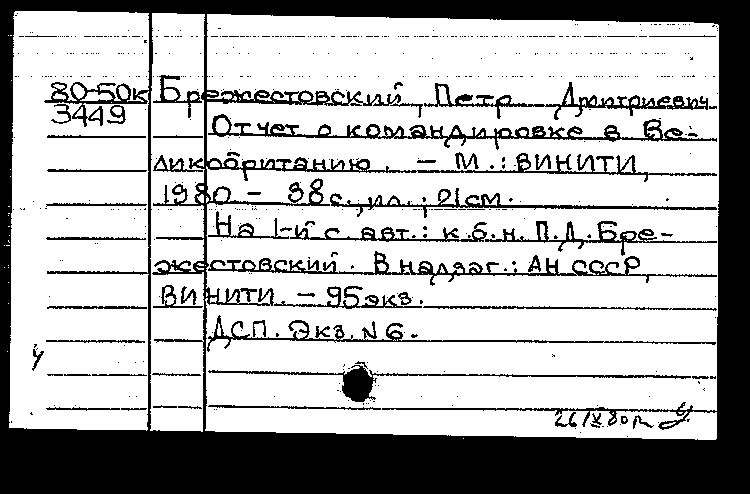 80-50к Брежестовский, Петр Дмитриевич
3449 Отчет о командировке в Ве-
ликобританию. - М.: ВИНИТИ,
1980 - 38 с., ил.; 21 см.
На 1-й с авт.: к.б.н. П.Д. Бре-
жестовский. В надзаг.: АН СССР,
ВИНИТИ. - 95 экз.
ДСП. Экз. N 6.
У
26/IX 80г